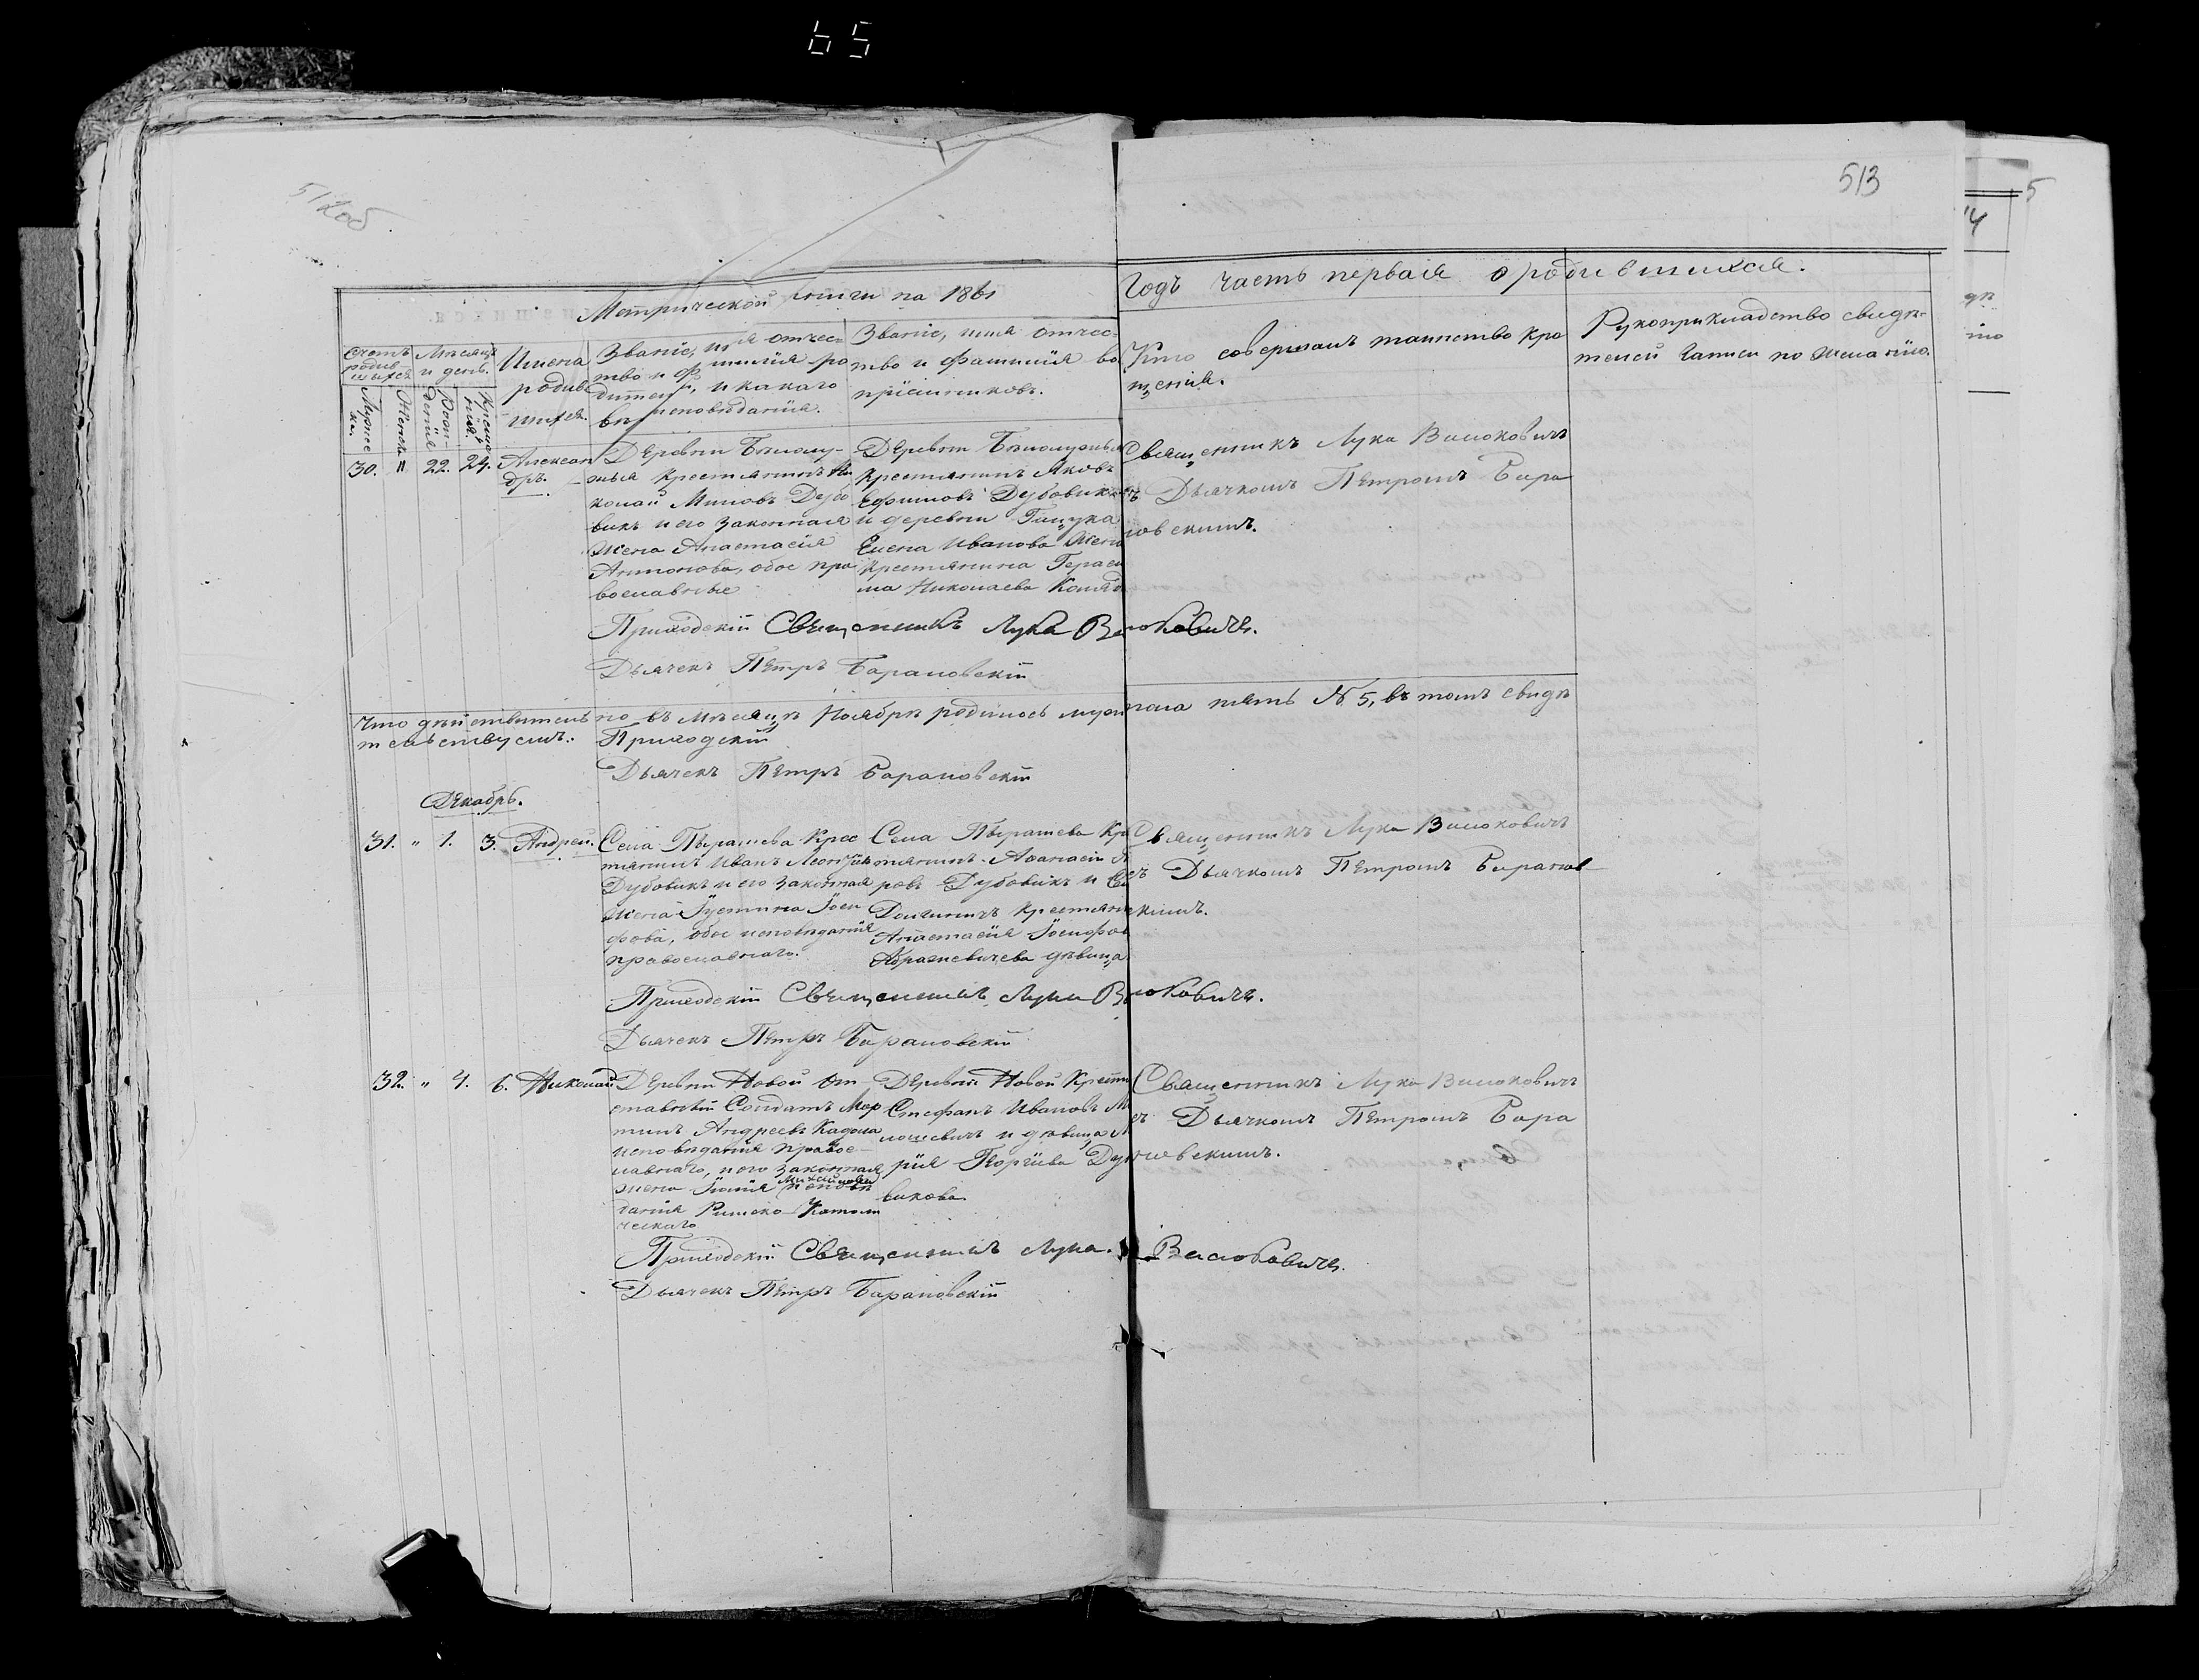 65
512 об
513
5
Метрической книги на 1861
Годъ часть первая о родившихся.
Счетъ родив-
шихся
Мужес
ка.
Женск.
Мѣсяцъ
и день.
Рож-
денія
Креще
нія.
Имена
родив
шихся.
Званіе, имя отчес-
тво и фамилія ро
дител, и какаго
вѣроисповѣданія.
Званіе, имя отчес-
тво и фамилія во
пріемниковъ.
Кто совершалъ таинство кре
щенія.
Рукоприкладство свидѣ-
телей записи по желанію.
30. " 22. 24. Алексан
дръ.
Деревни
крестьянинъ Ни
колай Миновъ Дубо
викъ и его законная
жена Анастасія
Антонова, обое пра
вославные
Деревни
крестьянинъ Яковъ
Ефимовъ Дубовик
и деревни Гацука
Елена Иванова жен
крестьянина Гераси
ма Николаева Коляд
Священникъ Лука Вилюковичъ
съ Дьячкомъ Петромъ Бара
новскимъ.
Приходскій Священникъ Лука Вилюковичъ.
Дьячекъ Петръ Барановскій
Что дѣйствительно въ Мѣсяцѣ Ноябрѣ родилось муж пола пять № 5, въ томъ свидѣ
тельствуемъ: Приходскій
Дьячекъ Петръ Барановскій
Декабрь.
31. " 1. 3. Андрей.
Села Пырашева Крес
тьянинъ Иванъ Леонтіев
Дубовикъ и его законная
жена Іустина Іоси
фова, обое исповѣданія
православнаго.
Села Пырашева Кре
тьянинъ Аѳанасій
ровъ Дубовикъ и Се
Долгиничъ крестьян
Анастасія Іосифов
Абрамевичева дѣвица
Священникъ Лука Вилюковичъ
съ Дьячкомъ Петромъ Баранов
скимъ.
Приходскій Священникъ Лука Вилюковичъ.
Дьячекъ Петръ Барановскій
32. " 4. 6. Николай
Деревни Новой От
ставный Солдатъ Мар
тинъ Андреевъ Кадола
исповѣданія правос-
лавнаго, и его законная
жена Юлія Михайлова исповѣ
данія Римско-Католи
ческаго
Деревни Новой Крест
Стефанъ Ивановъ М
лошевичъ и дѣвица М
рія Георгіева Ду
викова
Священникъ Лука Вилюковичъ
съ Дьячкомъ Петромъ Бара
новскимъ.
Приходскій Священникъ Лука Вилюковичъ.
Дьячекъ Петръ Барановскій